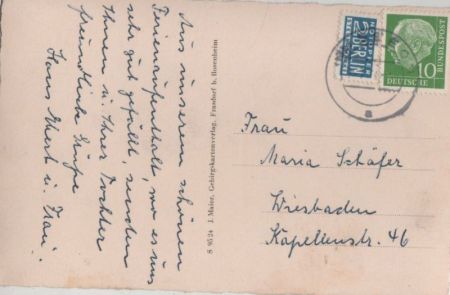 Aus unserem schönen
Ferienaufenthalt, wo es uns
sehr gut gefällt, senden
Ihnen u. Ihrer Tochter
freundliche Grüße
Hans Ebert u. Frau.
S 9524 J. Maier, Gebirgskartenverlag, Frasdorf b. Rosenheim
NOTOPFER
2 BERLIN
STEUERMARKE
10
DEUTSCHE
BUNDESPOST
a
Frau
Maria Schäfer
Wiesbaden
Kapellenstr. 46